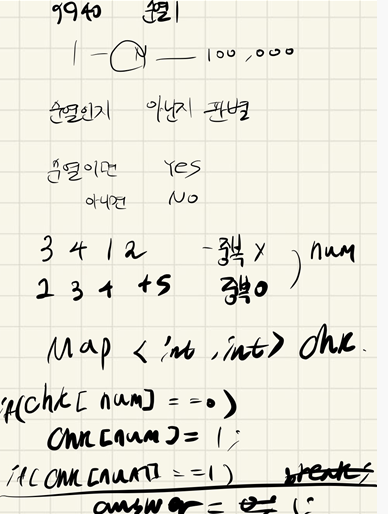 9940 순열1
1 - N — 100,000
순열인지 아닌지 판별
순열이면 Yes
아니면 No
3 4 1 2 - 중복 x
2 3 4 +5 중복 o ) num
Map <int, int> chk.
if(chk[num] == 0)
chk[num] = 1;
if(chk[num] == 1) break;
answer = 1;